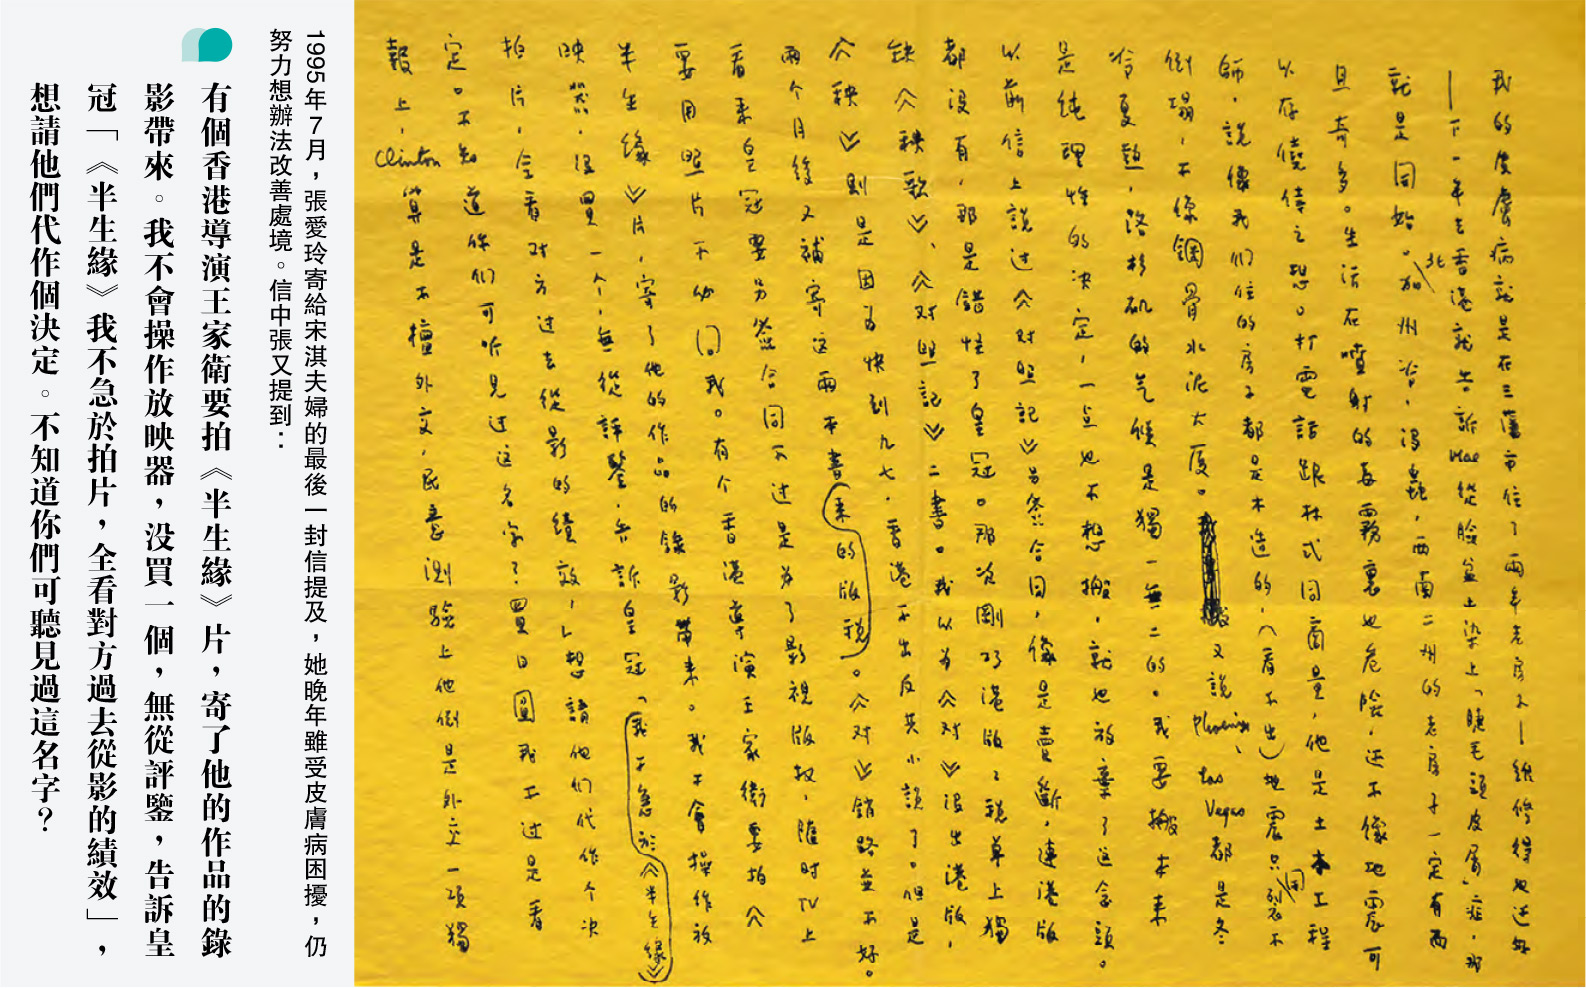 1995年7月，張愛玲寄給宋淇夫婦的最後一封信提及，她晚年雖受皮膚病困擾，仍
努力想辦法改善處境。信中張又提到：
有個香港導演王家衛要拍《半生緣》片，寄了他的作品的錄
影帶來。我不會操作放映器，没買一個，無從評鑒，告訴皇
冠「《半生緣》我不急於拍片，全看對方過去從影的績效」，
想請他們代作個決定。不知道你們可聽見過這名字？
我的皮膚病就是在三藩市住了兩年老房子—維修得也还好
—下一年去香港就告訴Mae從臉盆上染上「睫毛頭皮屑」症，那
就是同始。北加州冷，沒虫，西南二州的老房子一定有而
且奇多。生活在噴射的毒霧裏也危險，还不像地震可
以存僥倖之想。打電話跟林式同商量，他是土木工程
師，說像我们住的房子都是木造的，(看不出)地震只裂不
倒塌，不像鋼骨水泥大厦。又說Phoenix、Las Vegas都是冬
冷夏熱，洛杉矶的气候是獨一無二的。我要搬本来
是純理性的决定，一点也不想搬，就也放棄了这念頭。
以前信上說过《对照記》另簽合同，像是賣斷，連港版
都没有，那是錯怪了皇冠。那次剛巧港版版税单上獨
缺《秧歌》、《对照記》二書。我以为《对》没出港版，
《秧》則是因为快到九七，香港不出反共小說了。但是
兩个月後又補寄这兩本書来的版税。《对》銷路並不好。
看来皇冠要另簽合同不过是为了影視版权，随时TV上
要用照片不必问我。有个香港導演王家衛要拍《
半生緣》片，寄了他的作品的錄影帶来。我不會操作放
映器，没買一个，無從評鑒，告訴皇冠「我不急於《半生緣》
拍片，全看对方过去從影的績效，」想請他们代作个决
定。不知道你们可听见过这名字？買日圓我不过是看
報上，Clinton算是不擅外交，民意測驗上他倒是外交一項獨